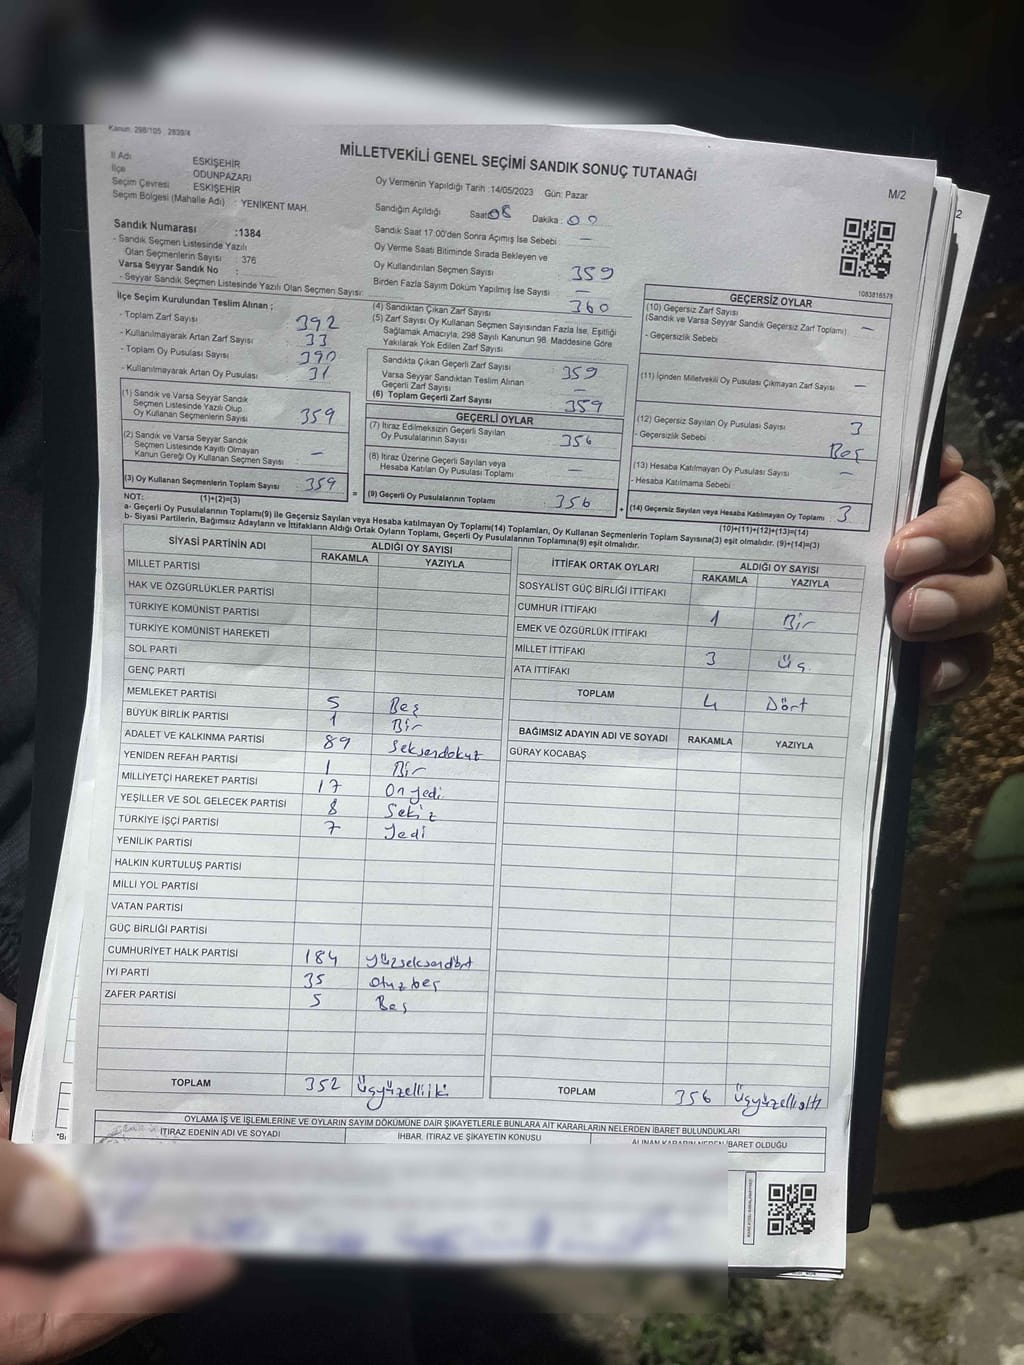 Kanun. 298/105 , 2839/4
MİLLETVEKİLİ GENEL SEÇİMİ SANDIK SONUÇ TUTANAĞI
M/2
İl Adı ESKİŞEHİR
İlçe ODUNPAZARI
Seçim Çevresi : ESKİŞEHİR
Seçim Bölgesi (Mahalle Adı) : YENİKENT MAH.
Sandık Numarası :1384
- Sandık Seçmen Listesinde Yazılı
Olan Seçmenlerin Sayısı : 376
Varsa Seyyar Sandık No :
- Seyyar Sandık Seçmen Listesinde Yazılı Olan Seçmen Sayısı:
Oy Vermenin Yapıldığı Tarih :14/05/2023 Gün: Pazar
Sandığın Açıldığı Saat 08 Dakika : 00
Sandık Saat 17:00'den Sonra Açımış İse Sebebi : —
Oy Verme Saati Bitiminde Sırada Bekleyen ve
Oy Kullandırılan Seçmen Sayısı 359
Birden Fazla Sayım Döküm Yapılmış İse Sayısı : —
1083816578
İlçe Seçim Kurulundan Teslim Alınan ;
- Toplam Zarf Sayısı : 392
- Kullanılmayarak Artan Zarf Sayısı : 33
- Toplam Oy Pusulası Sayısı : 390
- Kullanılmayarak Artan Oy Pusulası : 31
(1) Sandık ve Varsa Seyyar Sandık
Seçmen Listesinde Yazılı Olup
Oy Kullanan Seçmenlerin Sayısı : 359
(2) Sandık ve Varsa Seyyar Sandık
Seçmen Listesinde Kayıtlı Olmayan
Kanun Gereği Oy Kullanan Seçmen Sayısı : —
(3) Oy Kullanan Seçmenlerin Toplam Sayısı : 359
(4) Sandıktan Çıkan Zarf Sayısı : 360
(5) Zarf Sayısı Oy Kullanan Seçmen Sayısından Fazla İse, Eşitliği
Sağlamak Amacıyla; 298 Sayılı Kanunun 98. Maddesine Göre
Yakılarak Yok Edilen Zarf Sayısı
Sandıkta Çıkan Geçerli Zarf Sayısı : 359
Varsa Seyyar Sandıktan Teslim Alınan
Geçerli Zarf Sayısı : —
(6) Toplam Geçerli Zarf Sayısı : 359
GEÇERLİ OYLAR
(7) İtiraz Edilmeksizin Geçerli Sayılan
Oy Pusulalarının Sayısı : 356
(8) İtiraz Üzerine Geçerli Sayılan veya
Hesaba Katılan Oy Pusulası Toplamı : —
= (9) Geçerli Oy Pusulalarının Toplamı : 356
GEÇERSİZ OYLAR
(10) Geçersiz Zarf Sayısı
(Sandık ve Varsa Seyyar Sandık Geçersiz Zarf Toplamı) : —
- Geçersizlik Sebebi :
(11) İçinden Milletvekili Oy Pusulası Çıkmayan Zarf Sayısı : —
(12) Geçersiz Sayılan Oy Pusulası Sayısı : 3
- Geçersizlik Sebebi : Beş
(13) Hesaba Katılmayan Oy Pusulası Sayısı : —
- Hesaba Katılmama Sebebi :
+ (14) Geçersiz Sayılan veya Hesaba Katılmayan Oy Toplamı : 3
NOT: (1)+(2)=(3)
(10)+(11)+(12)+(13)=(14)
a- Geçerli Oy Pusulasının Toplamı(9) ile Geçersiz Sayılan veya Hesaba katılmayan Oy Toplamı(14) Toplamları, Oy Kullanan Seçmenlerin Toplam Sayısına(3) eşit olmalıdır. (9)+(14)=(3)
b- Siyasi Partilerin, Bağımsız Adayların ve İttifakların Aldığı Ortak Oyların Toplamı, Geçerli Oy Pusulalarının Toplamına(9) eşit olmalıdır.
SİYASİ PARTİNİN ADI ALDIĞI OY SAYISI
RAKAMLA YAZIYLA
MİLLET PARTİSİ
HAK VE ÖZGÜRLÜKLER PARTİSİ
TÜRKİYE KOMÜNİST PARTİSİ
TÜRKİYE KOMÜNİST HAREKETİ
SOL PARTİ
GENÇ PARTİ
MEMLEKET PARTİSİ 5 Beş
BÜYÜK BİRLİK PARTİSİ 1 Bir
ADALET VE KALKINMA PARTİSİ 89 Seksendokuz
YENİDEN REFAH PARTİSİ 1 Bir
MİLLİYETÇİ HAREKET PARTİSİ 17 On yedi
YEŞİLLER VE SOL GELECEK PARTİSİ 8 Sekiz
TÜRKİYE İŞÇİ PARTİSİ 7 Yedi
YENİLİK PARTİSİ
HALKIN KURTULUŞ PARTİSİ
MİLLİ YOL PARTİSİ
VATAN PARTİSİ
GÜÇ BİRLİĞİ PARTİSİ
CUMHURİYET HALK PARTİSİ 184 Yüzseksendört
İYİ PARTİ 35 Otuzbeş
ZAFER PARTİSİ 5 Beş
TOPLAM 352 Üçyüzelliiki
İTTİFAK ORTAK OYLARI ALDIĞI OY SAYISI
RAKAMLA YAZIYLA
SOSYALİST GÜÇ BİRLİĞİ İTTİFAKI
CUMHUR İTTİFAKI 1 Bir
EMEK VE ÖZGÜRLÜK İTTİFAKI
MİLLET İTTİFAKI 3 Üç
ATA İTTİFAKI
TOPLAM 4 Dört
BAĞIMSIZ ADAYIN ADI VE SOYADI RAKAMLA YAZIYLA
GÜRAY KOCABAŞ
TOPLAM 356 Üçyüzellialtı
OYLAMA İŞ VE İŞLEMLERİNE VE OYLARIN SAYIM DÖKÜMÜNE DAİR ŞİKAYETLERLE BUNLARA AİT KARARLARIN NELERDEN İBARET BULUNDUKLARI
İTİRAZ EDENİN ADI VE SOYADI İHBAR, İTİRAZ VE ŞİKAYETİN KONUSU ALINAN KARARIN NEDEN İBARET OLDUĞU